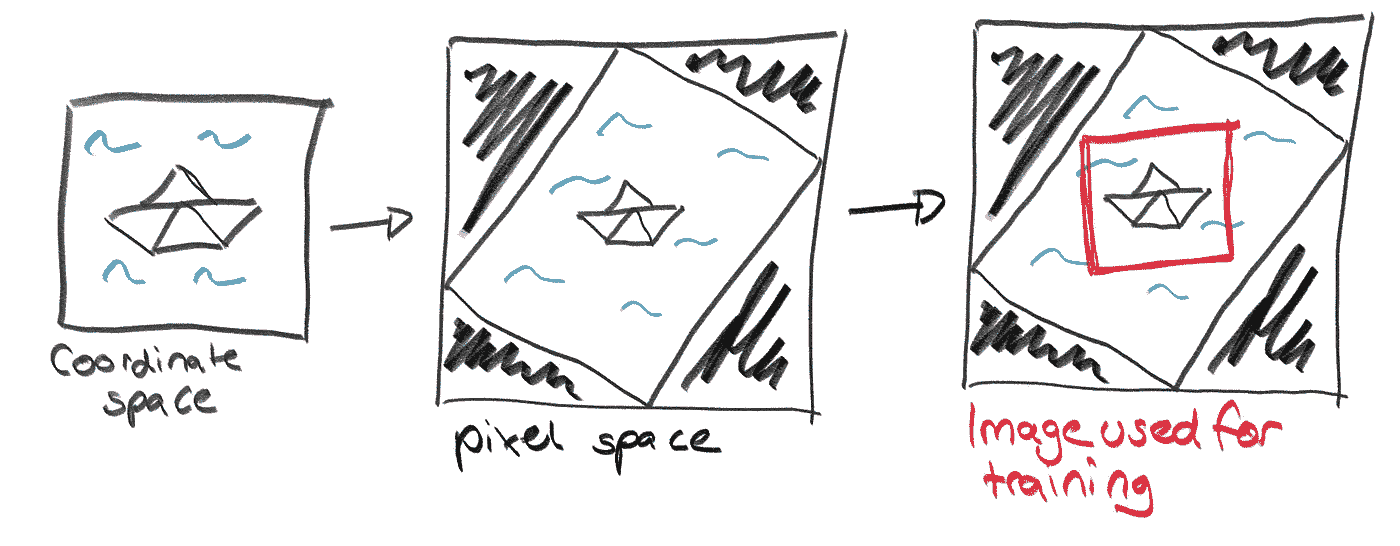 Coordinate
space
pixel space
Image used for
training